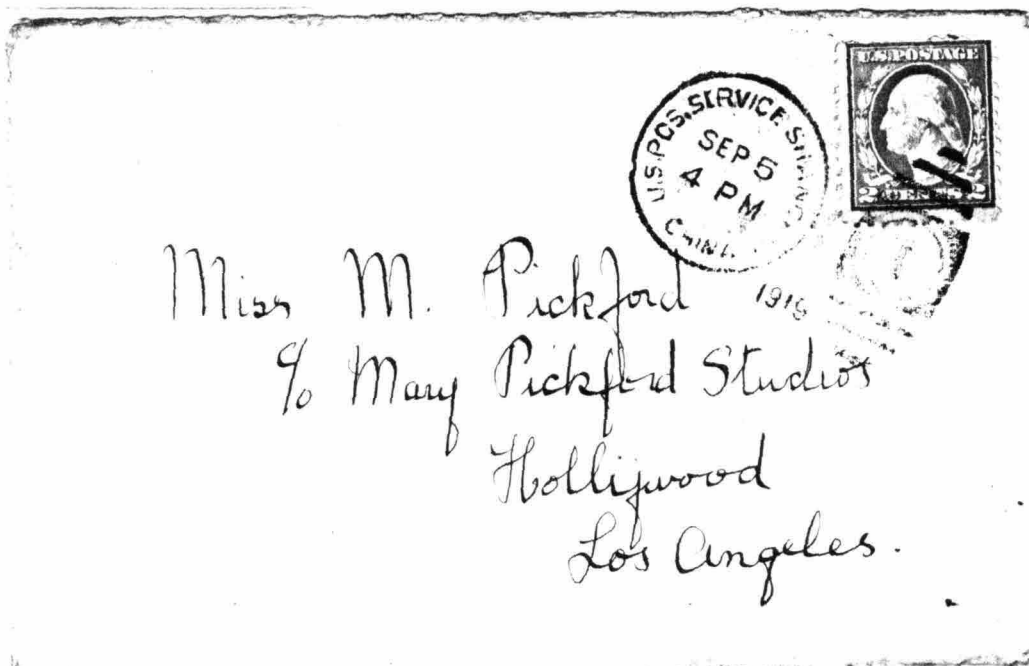 U.S. POSTAGE
2 CENTS 2
U.S. POS. SERVICE
SEP 5
4 PM
Miss M. Pickford
c/o Mary Pickford Studios
Hollywood
Los Angeles.